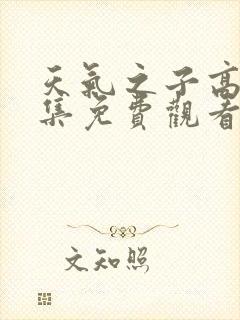 天氣之子高
集免費觀看
文知照